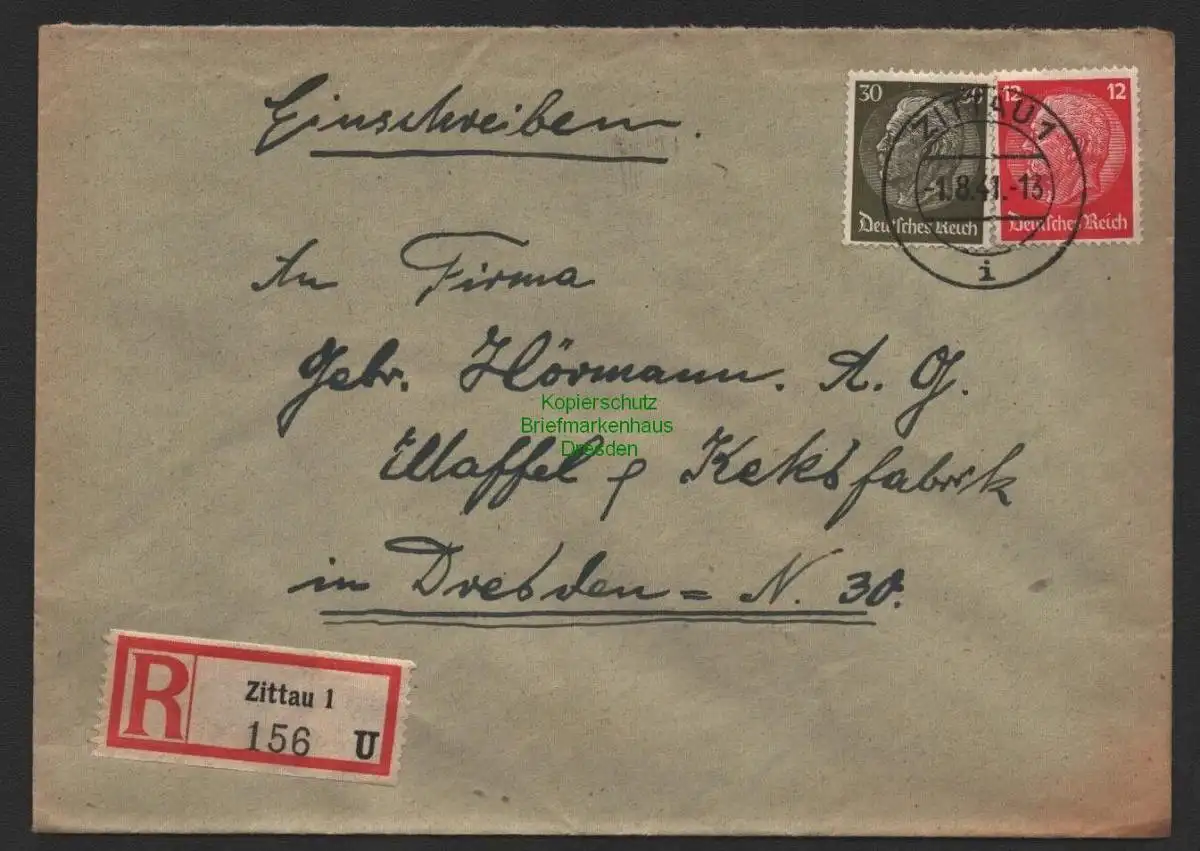 Einschreiben.
30 30 12 12
ZITTAU 1
-1.8.41.-13
Deutsches Reich Deutsches Reich
i
An Firma
Gebr. Hörmann. A. G.
Kopierschutz
Briefmarkenhaus
Dresden
Waffel & Keksfabrik
in Dresden = N. 30.
R Zittau 1
156 U